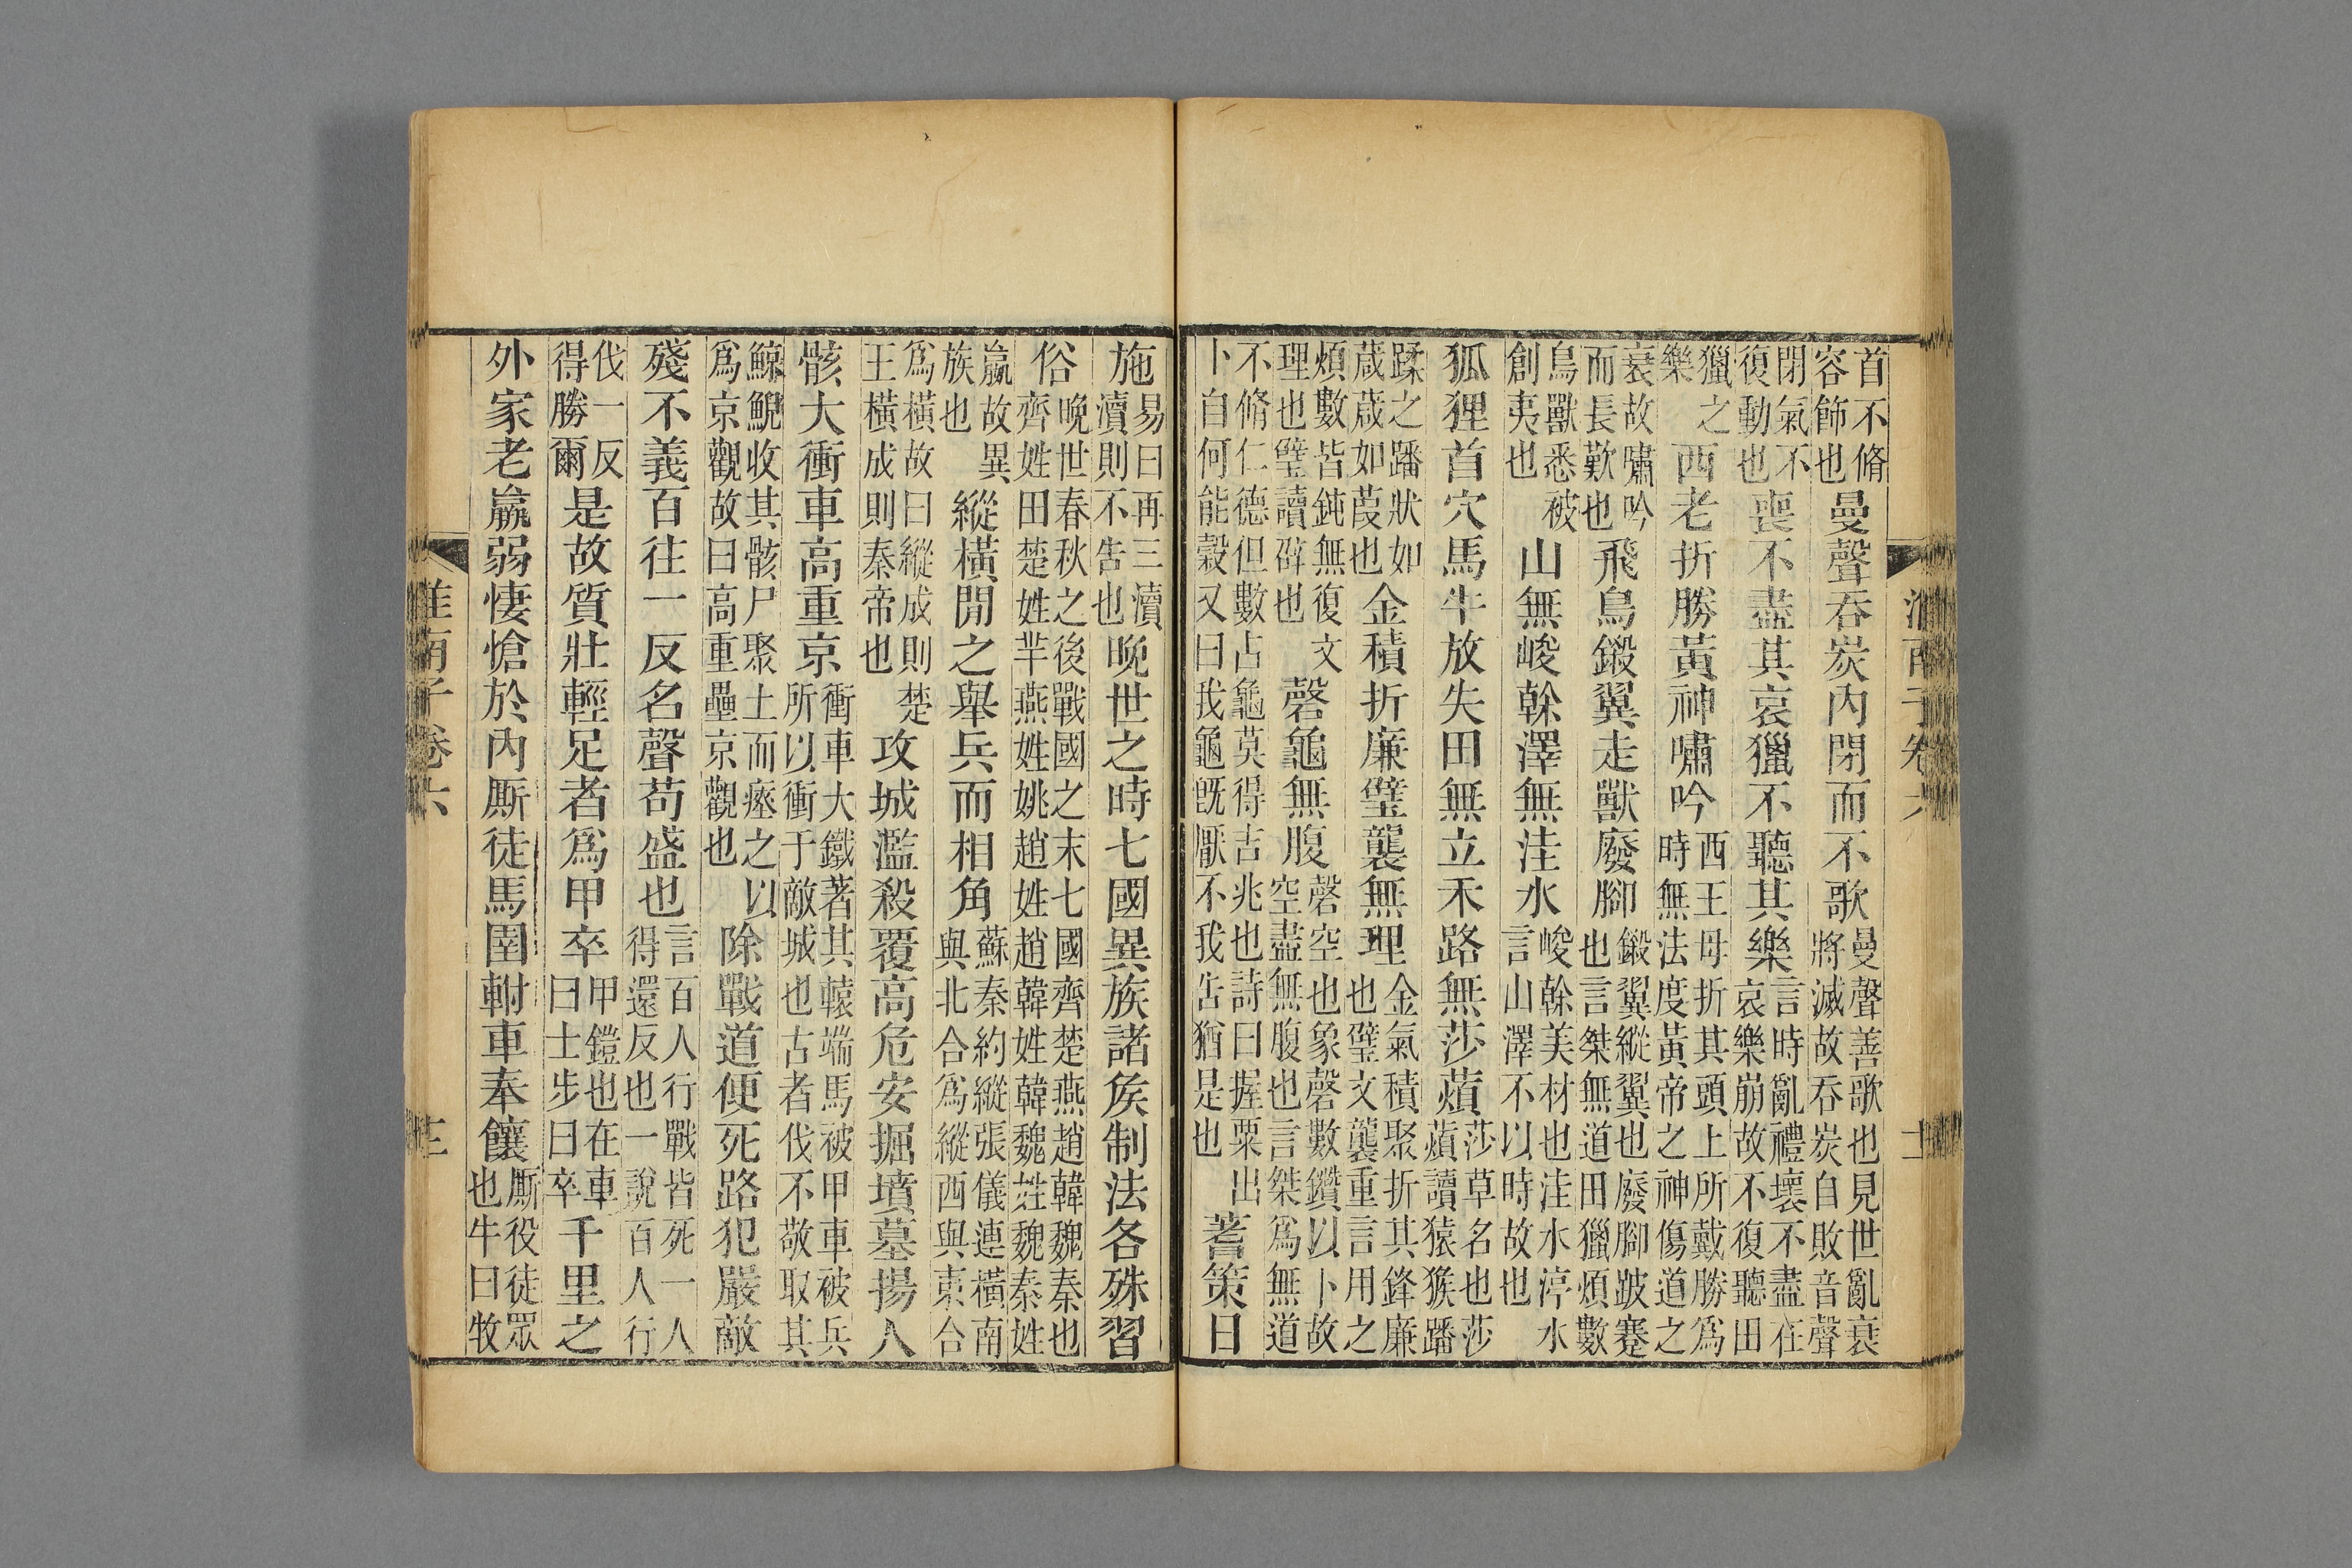 首不脩
容飾也曼聲吞炭內閉而不歌曼聲善歌也見世亂衰
將滅故吞炭自敗音聲
閉氣不
復動也喪不盡其哀獵不聽其樂言時亂禮壞不盡在
哀樂崩故不復聽田
獵之
樂西老折勝黃神嘯吟西王母折其頭上所戴勝爲
時無法度黃帝之神傷道之
衰故嘯吟
而長歎也飛鳥鎩翼走獸廢腳鎩翼縱翼也廢腳跛蹇
也言桀無道田獵煩數
鳥獸悉被
創夷也山無峻榦澤無洼水峻榦美材也洼水渟水
言山澤不以時故也
狐狸首穴馬牛放失田無立禾路無莎薠莎草名也莎
薠讀猿猴蹯
蹂之蹯狀如
葴葴如葭也金積折廉璧襲無理金氣積聚折其鋒廉
也璧文襲重言用之
煩數皆鈍無復文
理也璧讀辟也磬龜無腹磬空也象磬數鑽以卜故
空盡無腹也言桀爲無道
不脩仁德但數占龜莫得吉兆也詩曰握粟出
卜自何能穀又曰我龜旣厭不我告猶是也蓍策日
施易曰再三瀆
瀆則不告也晚世之時七國異族諸矦制法各殊習
俗晚世春秋之後戰國之末七國齊楚燕趙韓魏秦也
齊姓田楚姓羋燕姓姚趙姓趙韓姓韓魏姓魏秦姓
嬴故異
族也縱橫閒之舉兵而相角蘇秦約縱張儀連橫南
與北合爲縱西與東合
爲橫故曰縱成則楚
王橫成則秦帝也攻城濫殺覆高危安掘墳墓揚人
骸大衝車高重京衝車大鐵著其轅端馬被甲車被兵
所以衝于敵城也古者伐不敬取其
鯨鯢收其骸尸聚土而瘞之以
爲京觀故曰高重壘京觀也除戰道便死路犯嚴敵
殘不義百往一反名聲苟盛也言百人行戰皆死一人
得還反也一說百人行
伐一反
得勝爾是故質壯輕足者爲甲卒甲鎧也在車
曰士步曰卒千里之
外家老羸弱悽愴於內厮徒馬圉軵車奉饟厮役徒眾
也牛曰牧
淮南子卷六